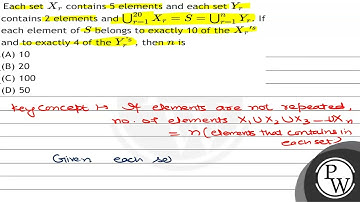 Each set Xr contains 5 elements and each set Yr
contains 2 elements and ⋃_{r=1}^{20} Xr = S = ⋃_{r=1}^{n} Yr. If
each element of S belongs to exactly 10 of the Xr's
and to exactly 4 of the Yr's, then n is
(A) 10
(B) 20
(C) 100
(D) 50
Key concept :→ If elements are not repeated,
no. of elements X1 ∪ X2 ∪ X3 --- ∪ Xn
= n(elements that contains in
each set)
Given each se
PW